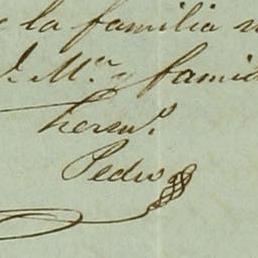 la familia
M.ª y famil
herm.º
Pedro